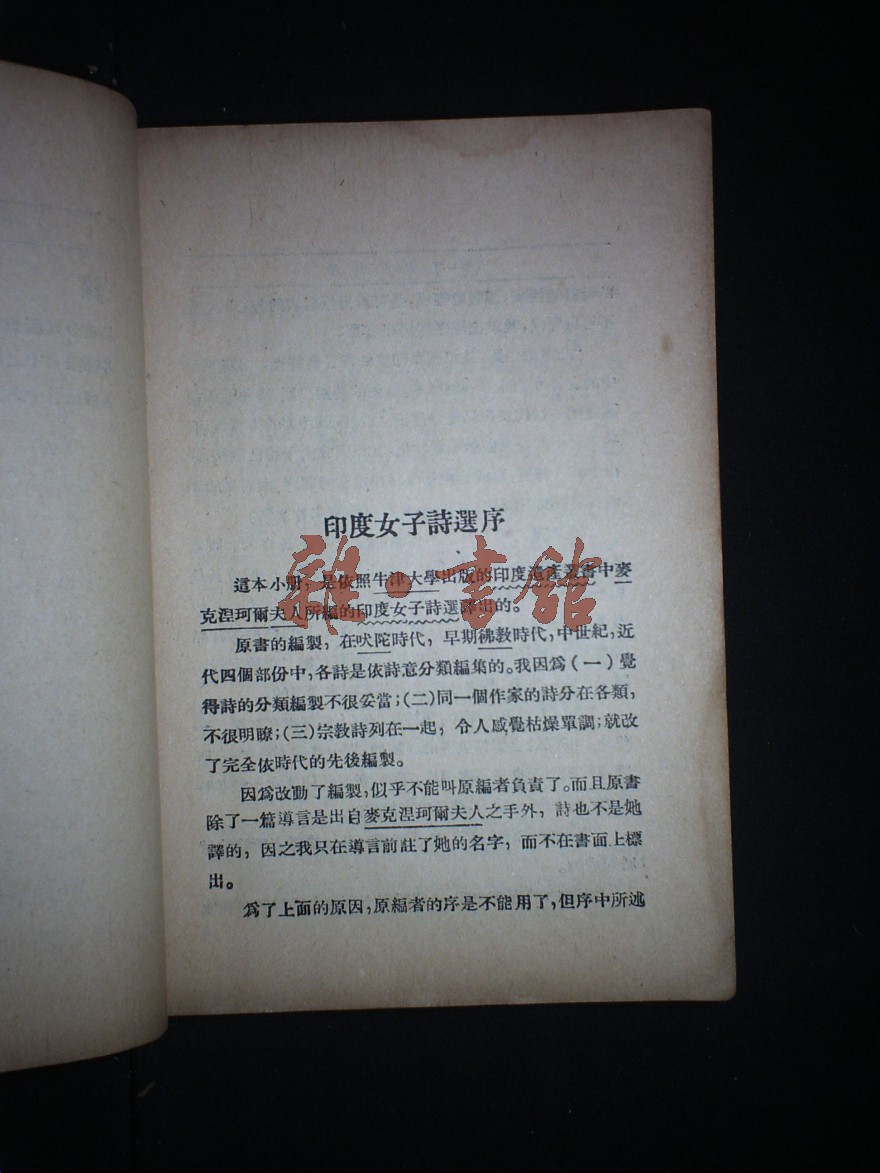 印度女子詩選序
這本小册，是依照牛津大學出版的印度遺產叢書中麥
克涅珂爾夫人所編的印度女子詩選譯出的。
原書的編製，在吠陀時代，早期佛教時代，中世紀，近
代四個部份中，各詩是依詩意分類編集的。我因爲(一)覺
得詩的分類編製不很妥當；(二)同一個作家的詩分在各類，
不很明瞭；(三)宗教詩列在一起，令人感覺枯燥單調；就改
了完全依時代的先後編製。
因爲改動了編製，似乎不能叫原編者負責了。而且原書
除了一篇導言是出自麥克涅珂爾夫人之手外，詩也不是她
譯的，因之我只在導言前註了她的名字，而不在書面上標
出。
爲了上面的原因，原編者的序是不能用了，但序中所述
雜·書館